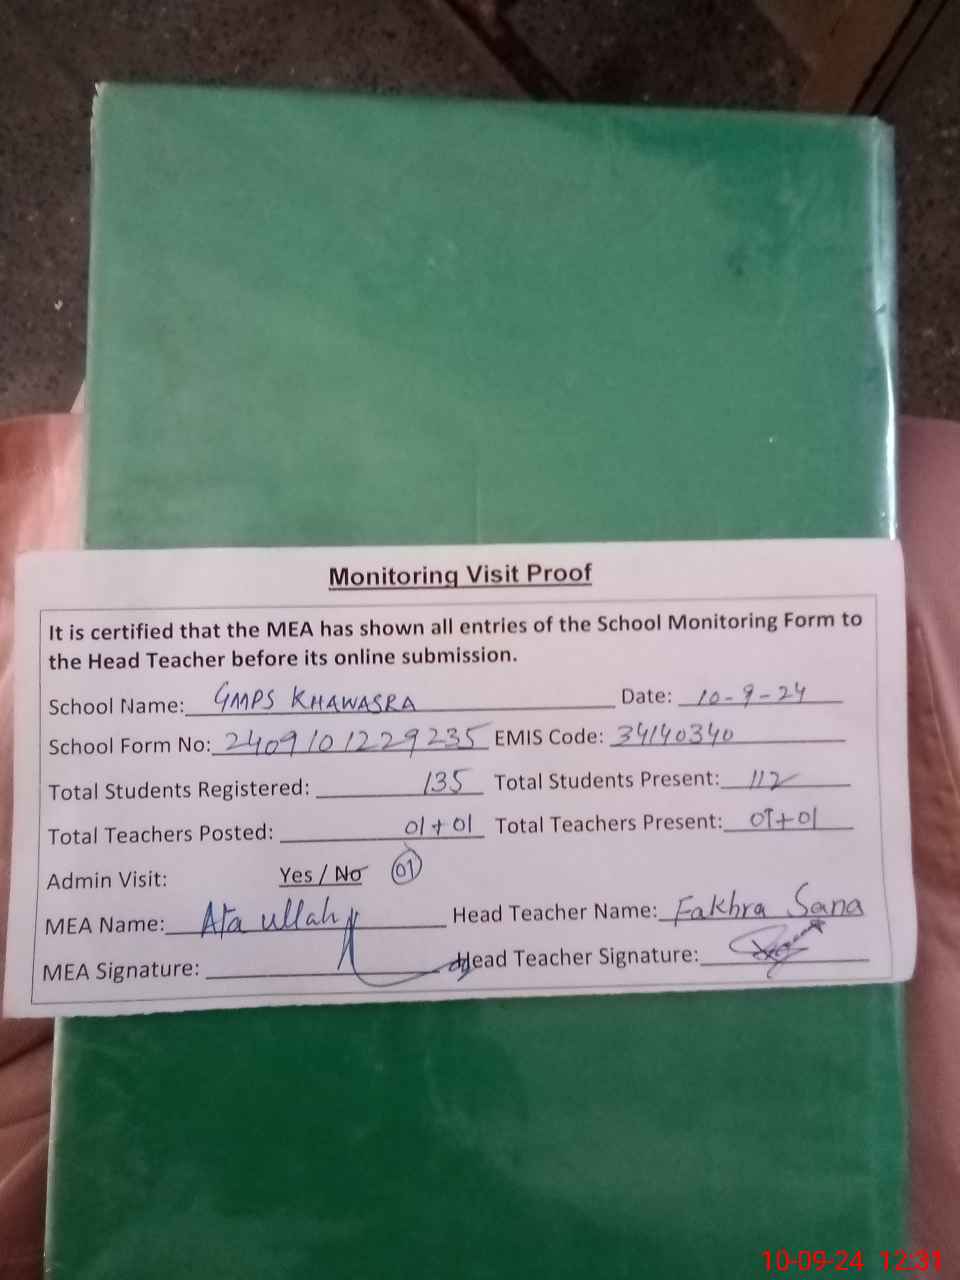 Monitoring Visit Proof
It is certified that the MEA has shown all entries of the School Monitoring Form to
the Head Teacher before its online submission.
School Name: GMPS KHAWASRA Date: 10-9-24
School Form No: 2409101229235 EMIS Code: 34140340
Total Students Registered: 135 Total Students Present: 112
Total Teachers Posted: 01+01 Total Teachers Present: 01+01
Admin Visit: Yes / No 01
MEA Name: Ata ullah Head Teacher Name: Fakhra Sana
MEA Signature: Head Teacher Signature:
10-09-24 12:31